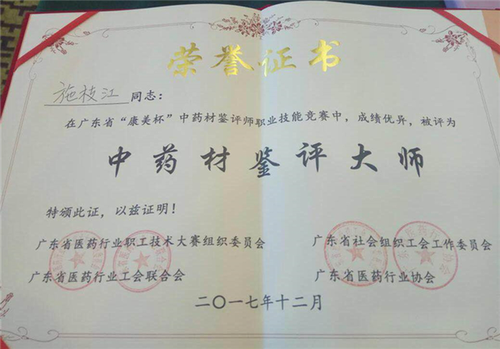 荣誉证书
施枝江 同志：
在广东省“康美杯”中药材鉴评师职业技能竞赛中，成绩优异，被评为
中药材鉴评大师
特颁此证，以兹证明！
广东省医药行业职工技术大赛组织委员会 广东省社会组织工会工作委员会
广东省医药行业工会联合会 广东省医药行业协会
二〇一七年十二月